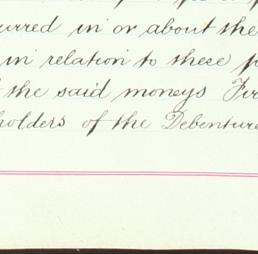 urred in or about the
in relation to these
the said moneys Fir
holders of the Debenture